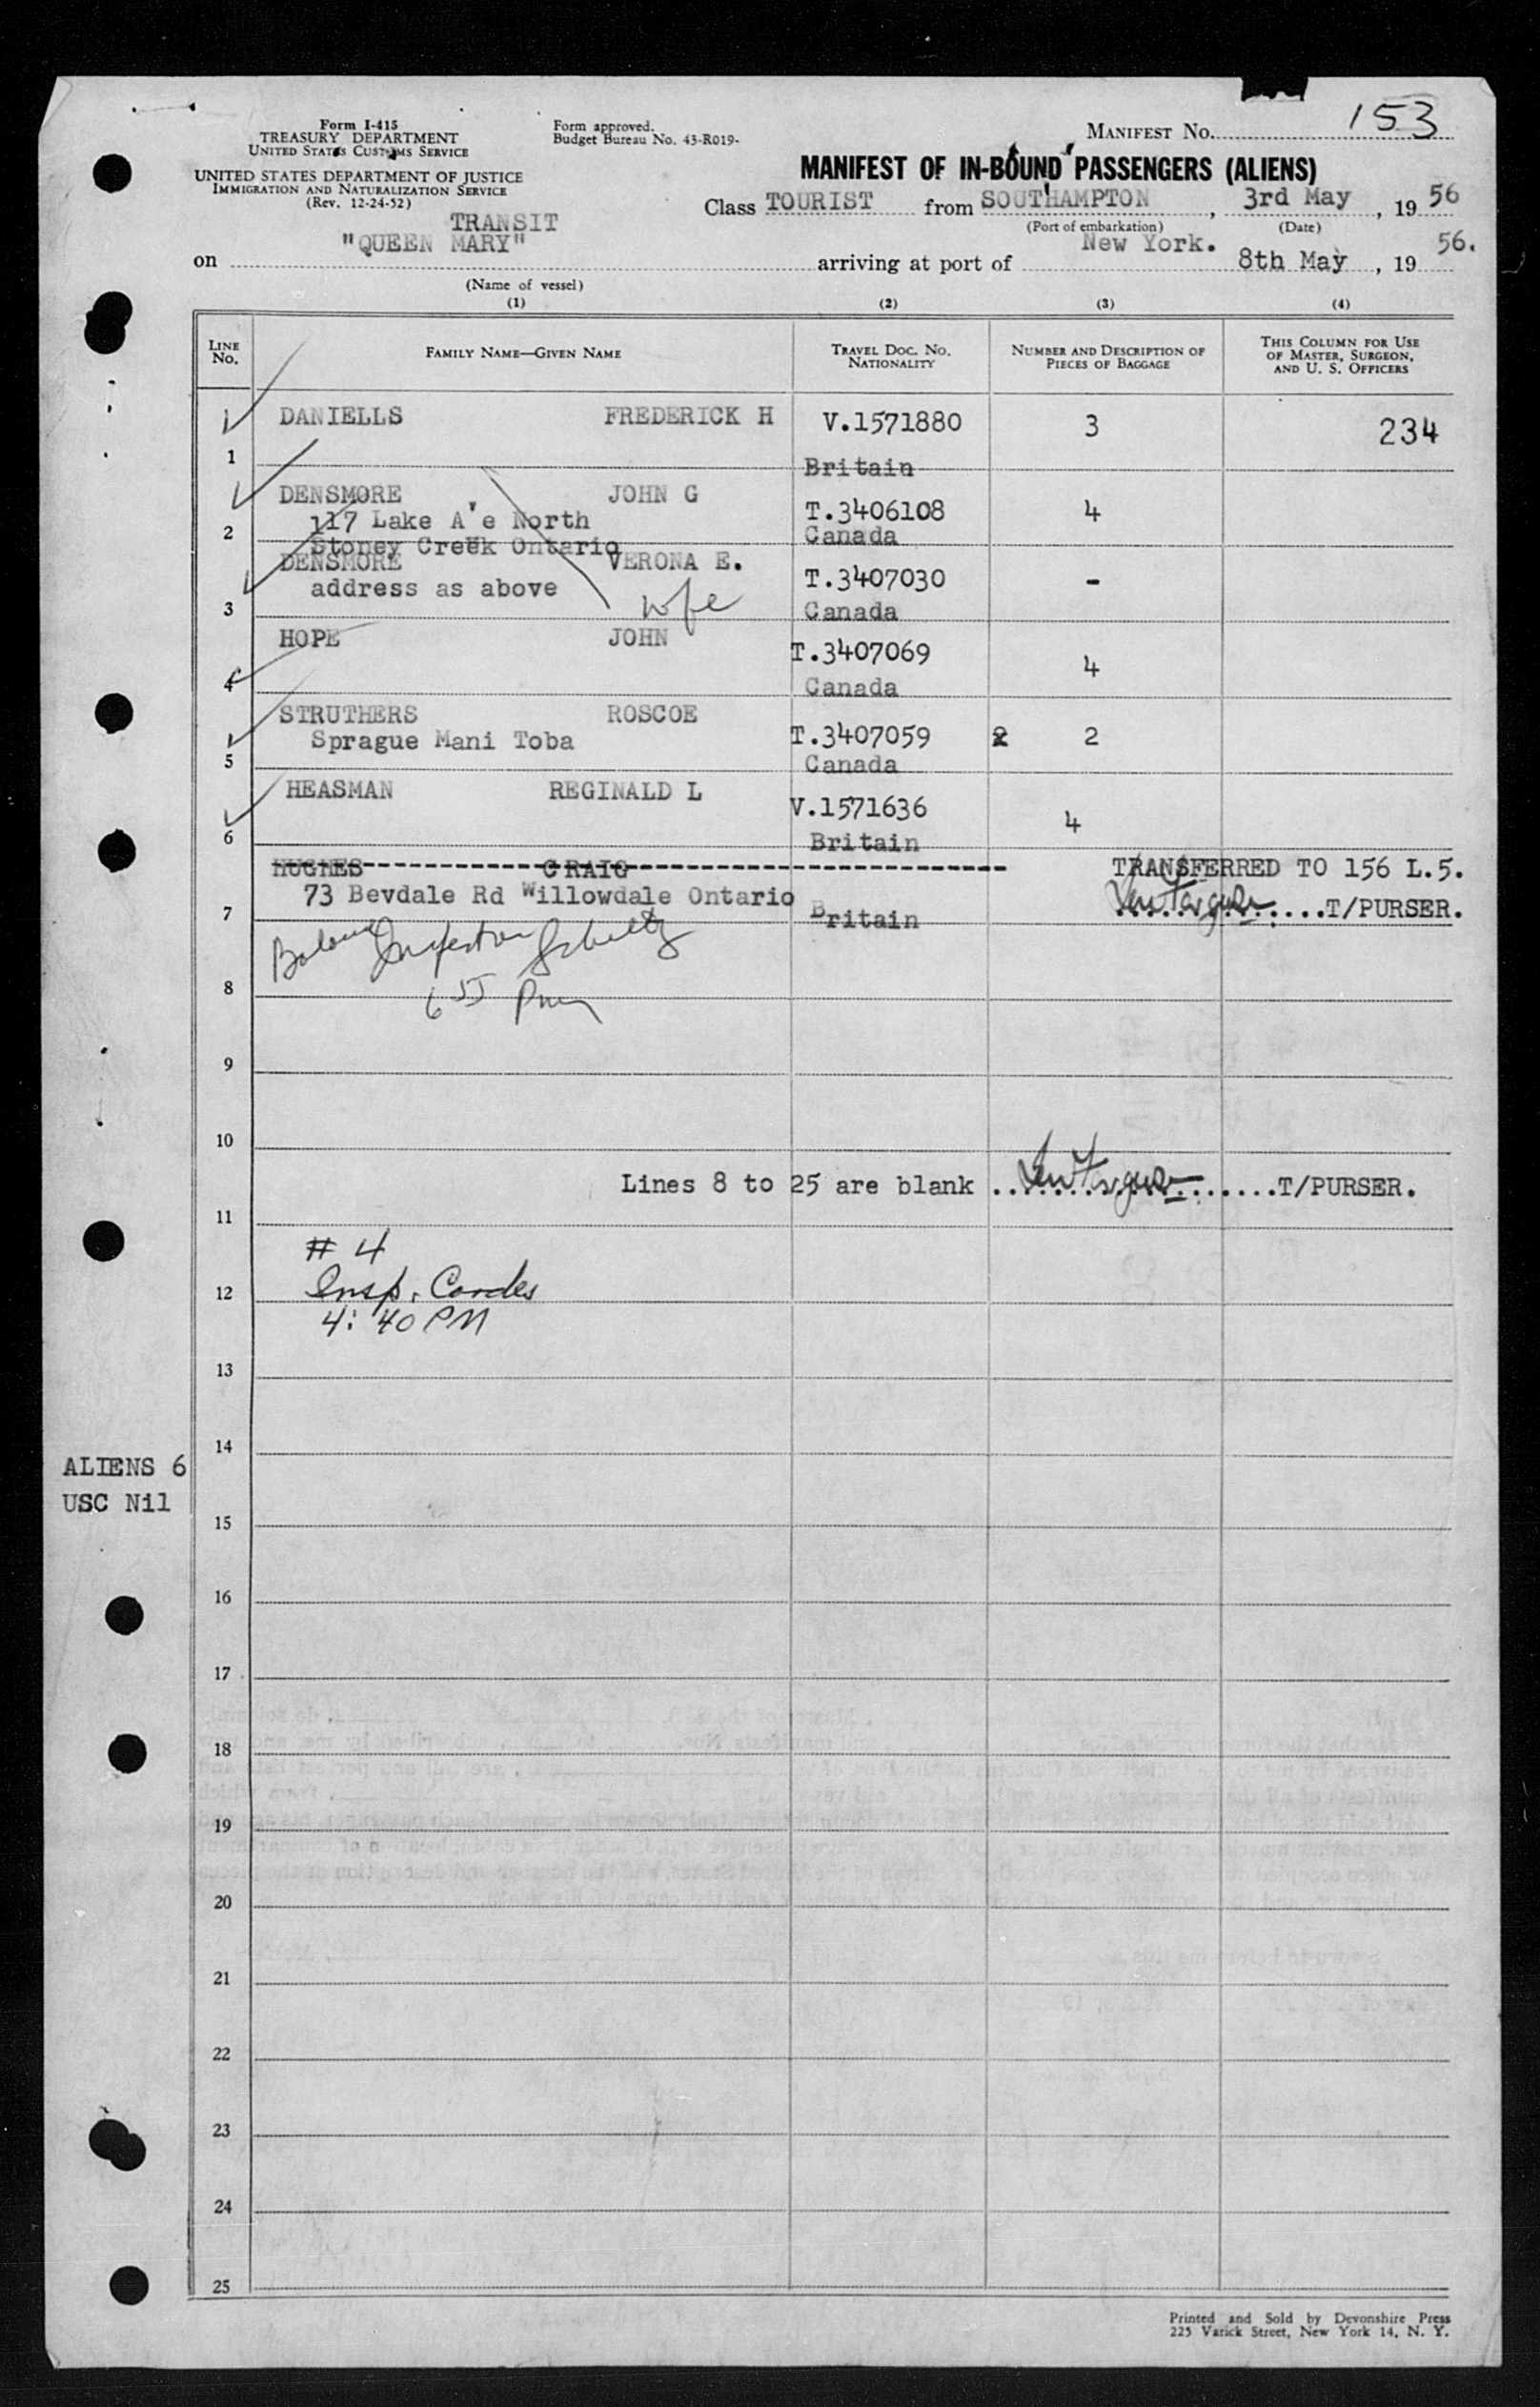 Form I-415
TREASURY DEPARTMENT
UNITED STATES CUSTOMS SERVICE
UNITED STATES DEPARTMENT OF JUSTICE
IMMIGRATION AND NATURALIZATION SERVICE
(Rev. 12-24-52)
Form approved.
Budget Bureau No. 43-R019-
MANIFEST NO. 153
MANIFEST OF IN-BOUND PASSENGERS (ALIENS)
Class TOURIST from SOUTHAMPTON, 3rd May, 19 56
(Port of embarkation) (Date)
TRANSIT
on "QUEEN MARY" arriving at port of New York. 8th May, 19 56.
(Name of vessel)
(1) (2) (3) (4)
LINE NO. FAMILY NAME—GIVEN NAME TRAVEL DOC. NO. NATIONALITY NUMBER AND DESCRIPTION OF PIECES OF BAGGAGE THIS COLUMN FOR USE OF MASTER, SURGEON, AND U. S. OFFICERS
DANIELLS FREDERICK H V.1571880 3 234
1 Britain
DENSMORE JOHN G T.3406108 4
117 Lake A'e North
2 Stoney Creek Ontario Canada
DENSMORE VERONA E. T.3407030 -
address as above wife
3 Canada
HOPE JOHN T.3407069 4
4 Canada
STRUTHERS ROSCOE
Sprague Mani Toba T.3407059 2 2
5 Canada
HEASMAN REGINALD L V.1571636 4
6 Britain
HUGHES CRAIG TRANSFERRED TO 156 L.5.
73 Bevdale Rd Willowdale Ontario
7 Britain T/PURSER.
Inspector Schultz
8
6 55 Pm
9
10
Lines 8 to 25 are blank T/PURSER.
11
# 4
12 Insp. Cordes
4:40 PM
13
14
ALIENS 6
USC Nil
15
16
17
18
19
20
21
22
23
24
25
Printed and Sold by Devonshire Press
225 Varick Street, New York 14, N. Y.